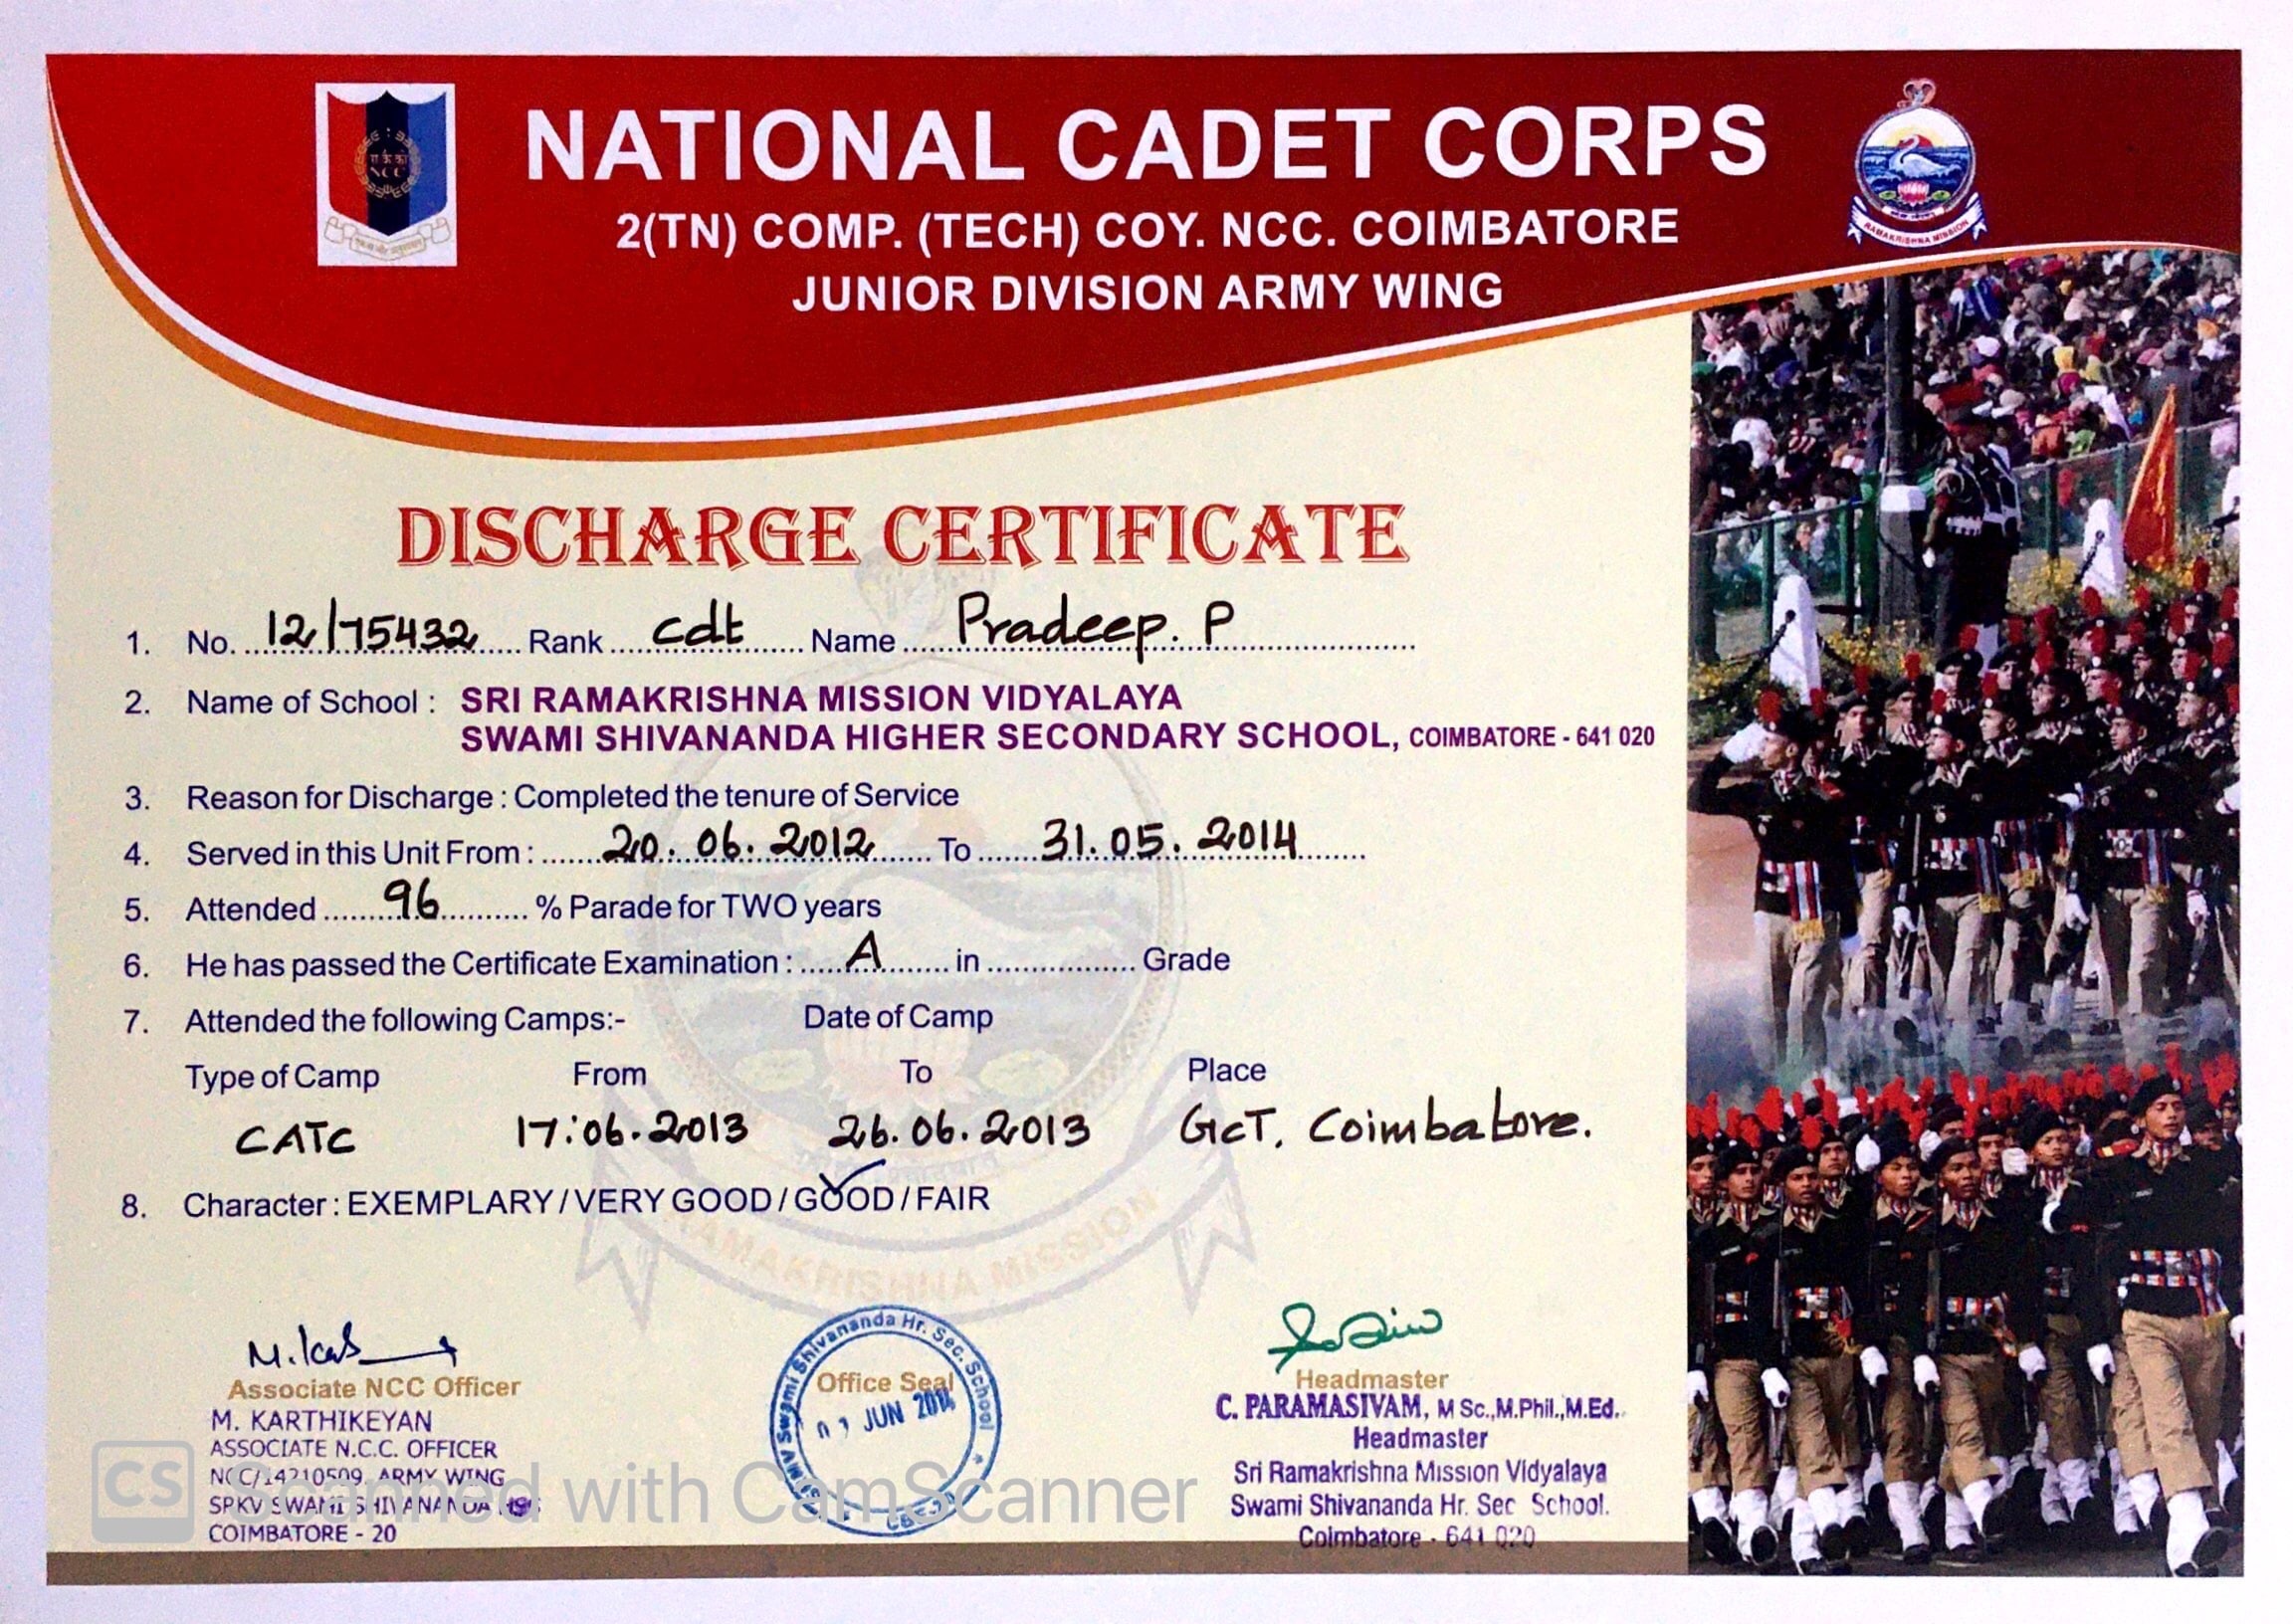 NATIONAL CADET CORPS
2(TN) COMP. (TECH) COY. NCC. COIMBATORE
JUNIOR DIVISION ARMY WING
NCC
RAMAKRISHNA MISSION
DISCHARGE CERTIFICATE
1. No. 12/75432 Rank cdt Name Pradeep. P
2. Name of School : SRI RAMAKRISHNA MISSION VIDYALAYA
SWAMI SHIVANANDA HIGHER SECONDARY SCHOOL, COIMBATORE - 641 020
3. Reason for Discharge : Completed the tenure of Service
4. Served in this Unit From : 20. 06. 2012 To 31. 05. 2014
5. Attended 96 % Parade for TWO years
6. He has passed the Certificate Examination : A in ................. Grade
7. Attended the following Camps:- Date of Camp
Type of Camp From To Place
CATC 17.06.2013 26.06.2013 GCT, Coimbatore.
8. Character : EXEMPLARY / VERY GOOD / GOOD / FAIR
RAMAKRISHNA MISSION
Associate NCC Officer
M. KARTHIKEYAN
ASSOCIATE N.C.C. OFFICER
NCC/14210509, ARMY WING
SRKV SWAMI SHIVANANDA HSS
COIMBATORE - 20
Swami Shivananda Hr. Sec. School
Office Seal
JUN 2014
CBE-20
Headmaster
C. PARAMASIVAM, M Sc.,M.Phil.,M.Ed.
Headmaster
Sri Ramakrishna Mission Vidyalaya
Swami Shivananda Hr. Sec School.
Coimbatore - 641 020
CS Scanned with CamScanner